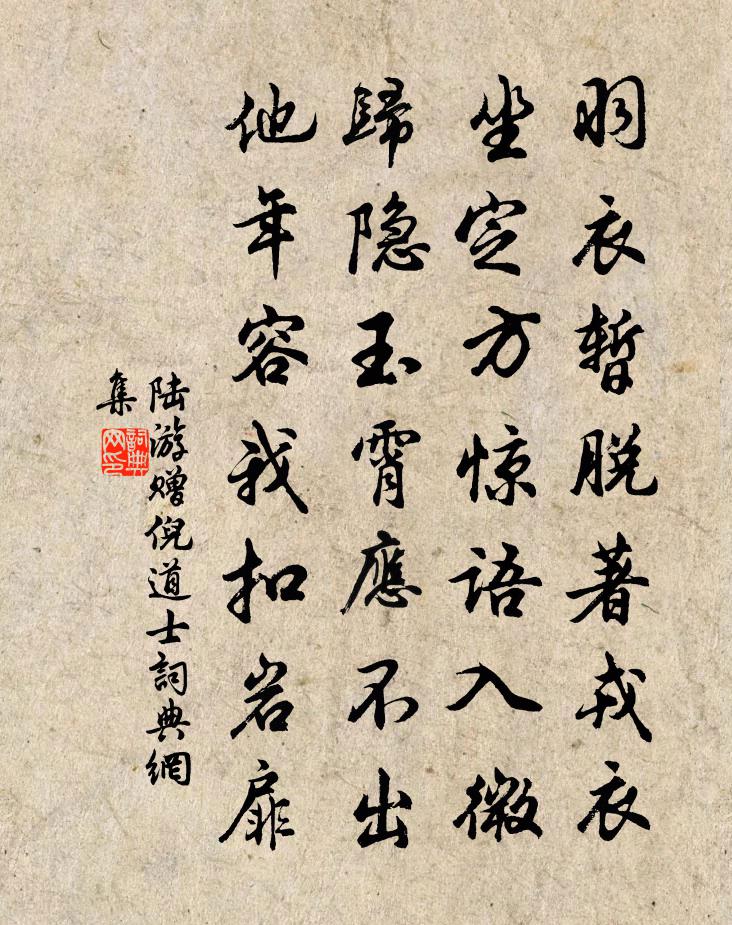 羽衣暫脱著戎衣
坐定方惊语入微
歸隐玉霄應不出
他年容我扣岩扉
陆游赠倪道士詞典網
集
詞典
网印